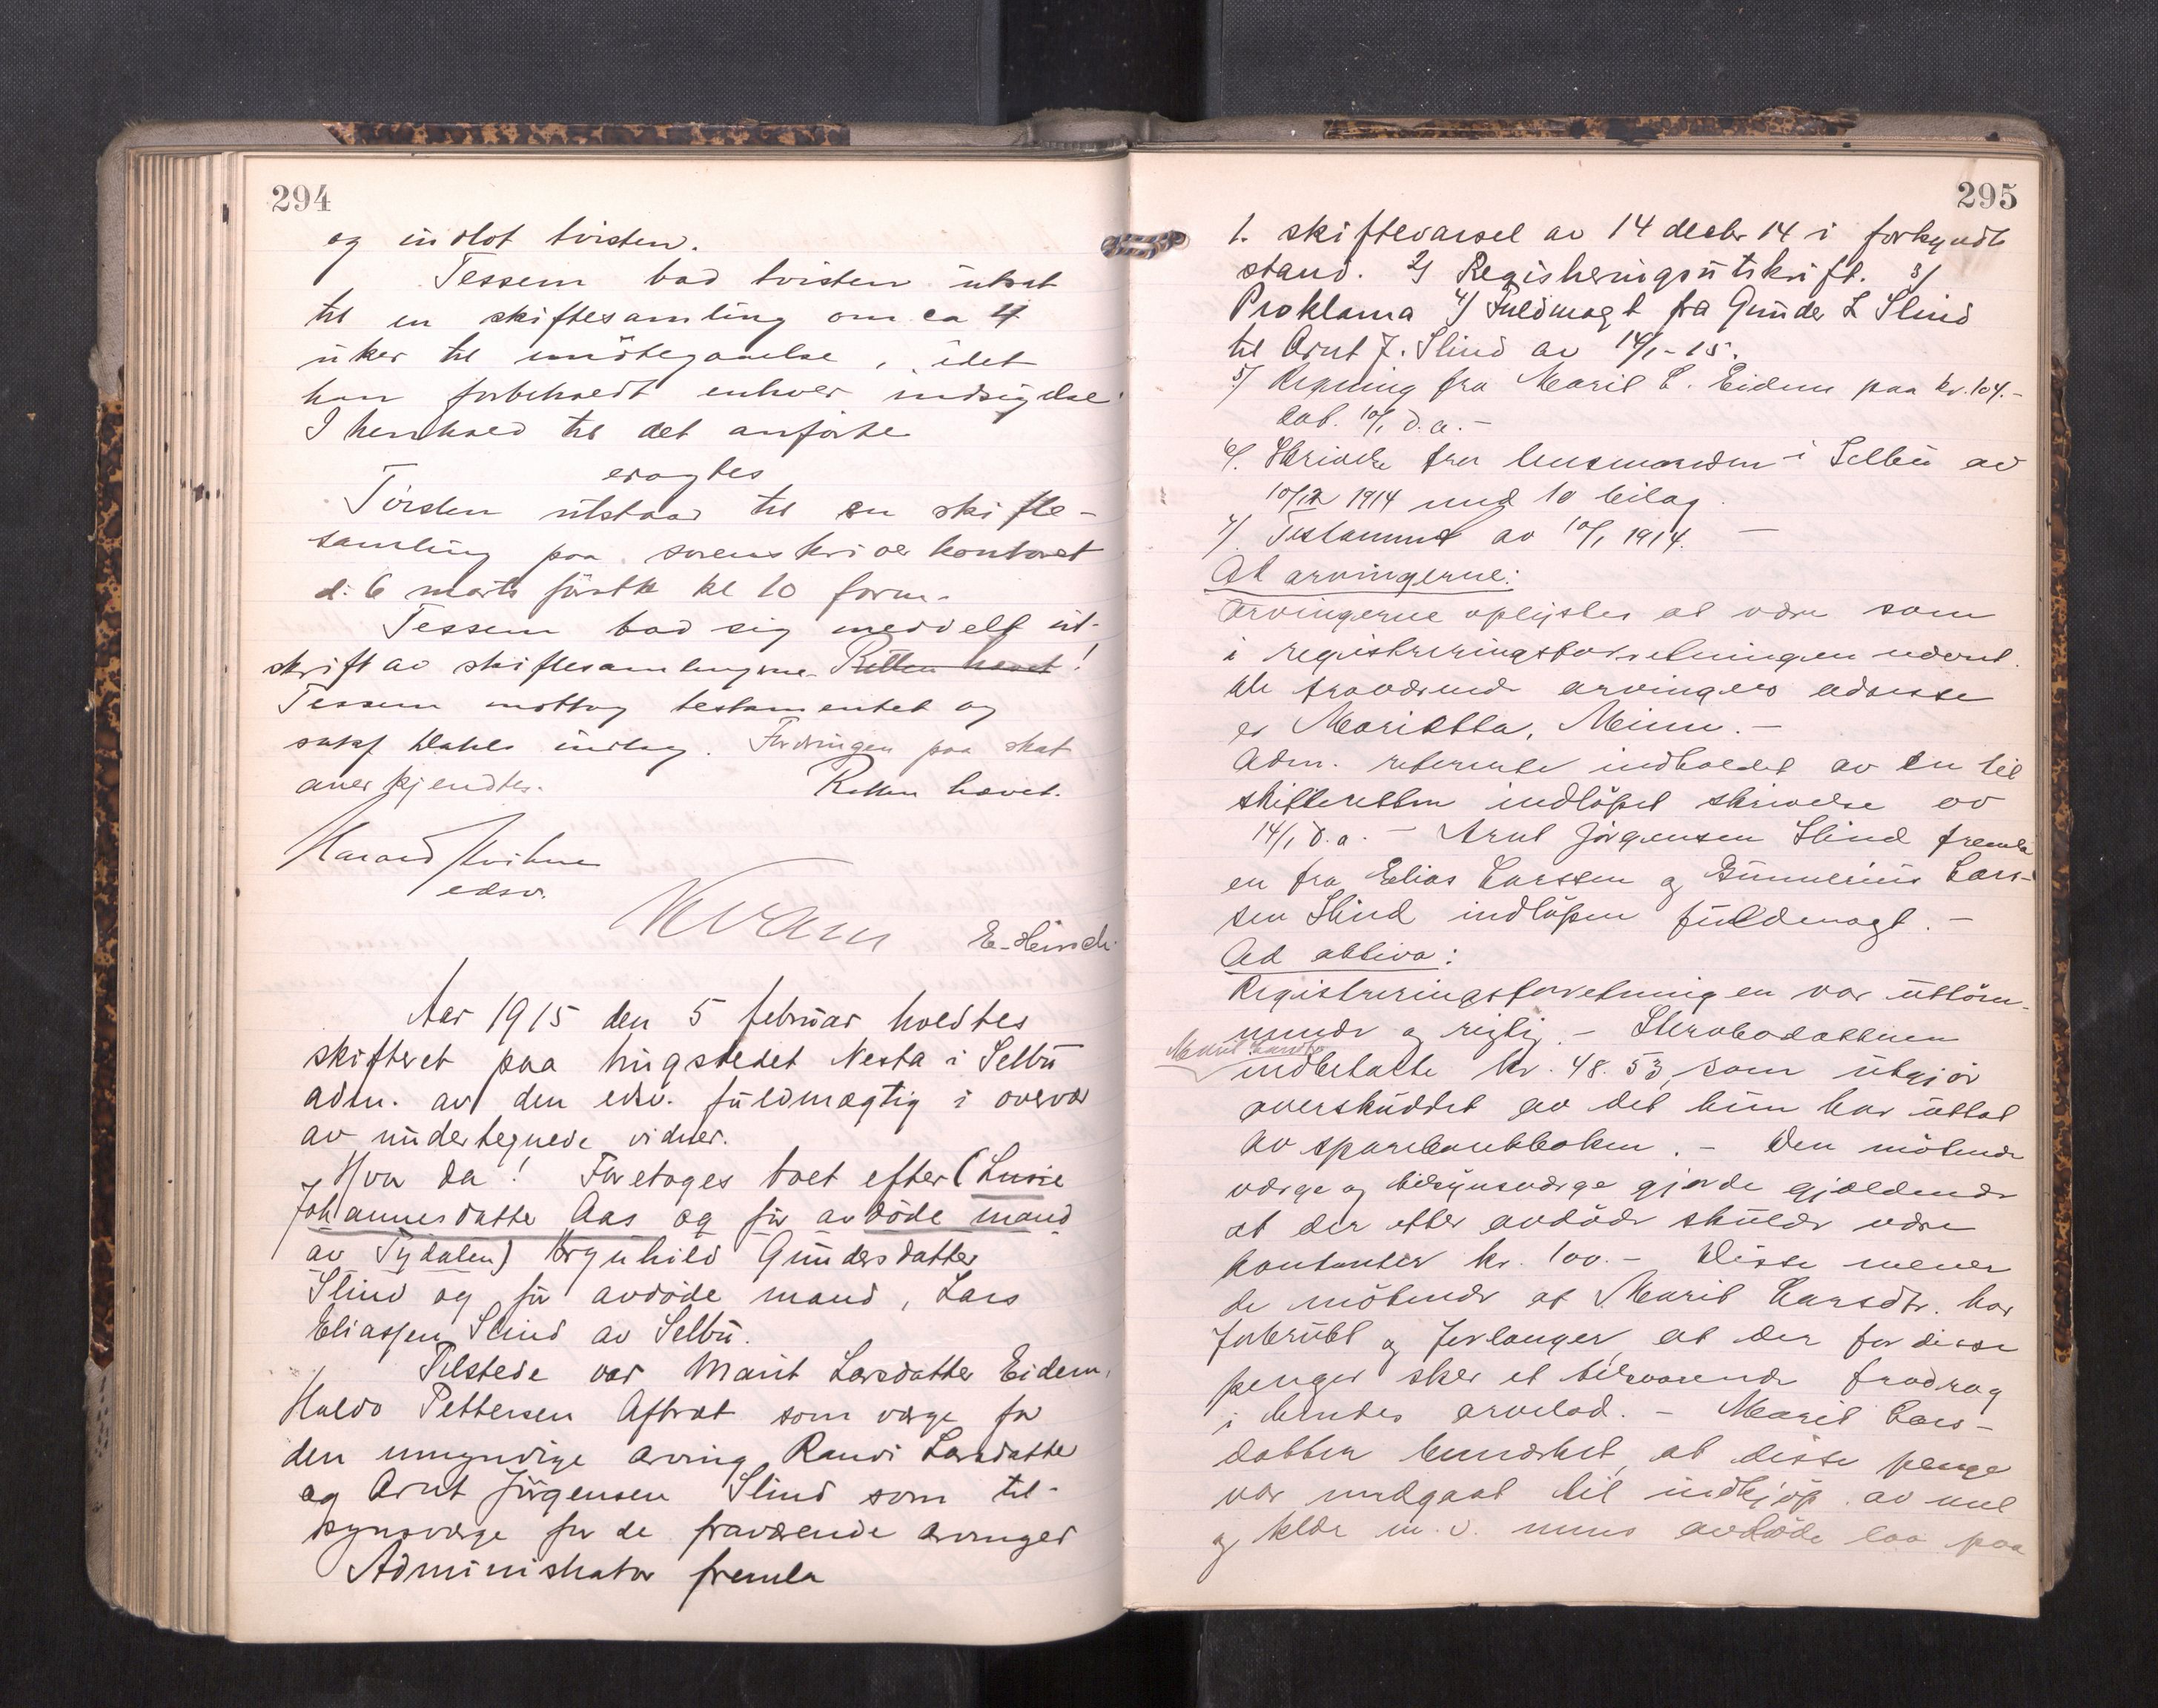 294
og indlot tvisten.
Tessem bad tvisten utsat
til en skiftesamling om ca 4
uker til imøtegaaelse, idet
han forbeholdt enhver indsigelse.
I henhold til det anførte
eragtes
Tvisten utstaar til en skifte-
samling paa sorenskriverkontoret
d. 6 marts førstk kl 10 form.
Tessem bad sig meddelt ut-
skrift av skiftesamlingene. Retten hævet!
Tessem mottog testamentet og
sakf Dahls indlæg. Fordringen paa skat
anerkjendtes. Retten hævet.
Harald
edsv.
E. Hirsch.
Aar 1915 den 5 februar holdtes
skifteret paa tingstedet Nesta i Selbu
adm. av den edsv. fuldmægtig i overvær
av undertegnede vidner.
Hvor da! Foretages boet efter (Lucie
Johannesdatter Aas og før avdøde mand
av Tydalen) Ragnhild Gundersdatter
Slind og før avdøde mand, Lars
Eliassen Slind av Selbu.
Tilstede var Marit Larsdatter Eidem,
Haldo Pettersen Aftret som værge for
den umyndige arving Randi Larsdatter
og Arnt Jørgensen Slind som til-
synsværge for de fraværende arvinger
Administrator fremla
295
1. skiftevarsel av 14 decbr 14 i forkyndt
stand. 2/ Registreringsutskrift. 3/
Proklama 4/ Fuldmagt fra Gunder L Slind
til Arnt J. Slind av 14/1-15.
5/ Regning fra Marit L. Eidem paa kr. 104.-
dat. 10/1 d.a. -
6/. Skrivelse fra lensmanden i Selbu av
10/12 1914 med 10 bilag.
7/. Testament av 10/1 1914. -
Ad arvingerne:
Arvingerne oplystes at være som
i registreringsforretningen nævnt.
De fraværende arvingers adresse
er Marietta, Minn. -
Adm. refererte indholdet av en til
skifteretten indløpet skrivelse av
14/1 d.a. - Arnt Jørgensen Slind fremla
en fra Elias Larssen og Gunnerius Lars-
sen Slind indløpen fuldmagt. -
Ad aktiva:
Registreringsforretningen var uttøm-
mende og rigtig. -
Marit Larsdtr
indbetalte kr. 48.53, som utgjør
overskuddet av det hun har uttat
av sparebankboken. - Den møtende
værge og tilsynsværge gjorde gjældende
at der efter avdøde skulde være
kontanter kr. 100. - Disse mener
de møtende at Marit Larsdtr. har
forbrukt og forlanger, at der for disse
penger sker et tilsvarende fradrag
i hendes arvelod. - Marit Lars-
datter bemerket, at disse penge
var medgaat til indkjøp av mel
og klær m.v. mens avdøde laa paa